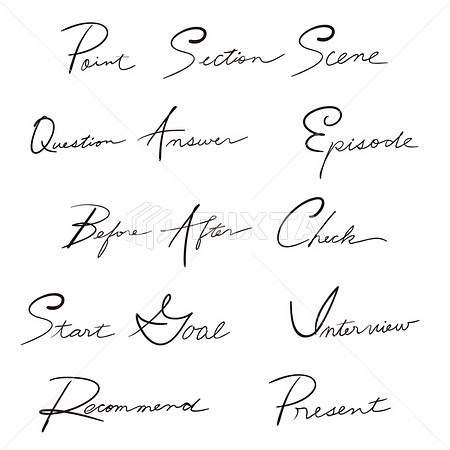 Point Section Scene
Question Answer Episode
Before After Check
PIXTA
Start Goal Interview
Recommend Present